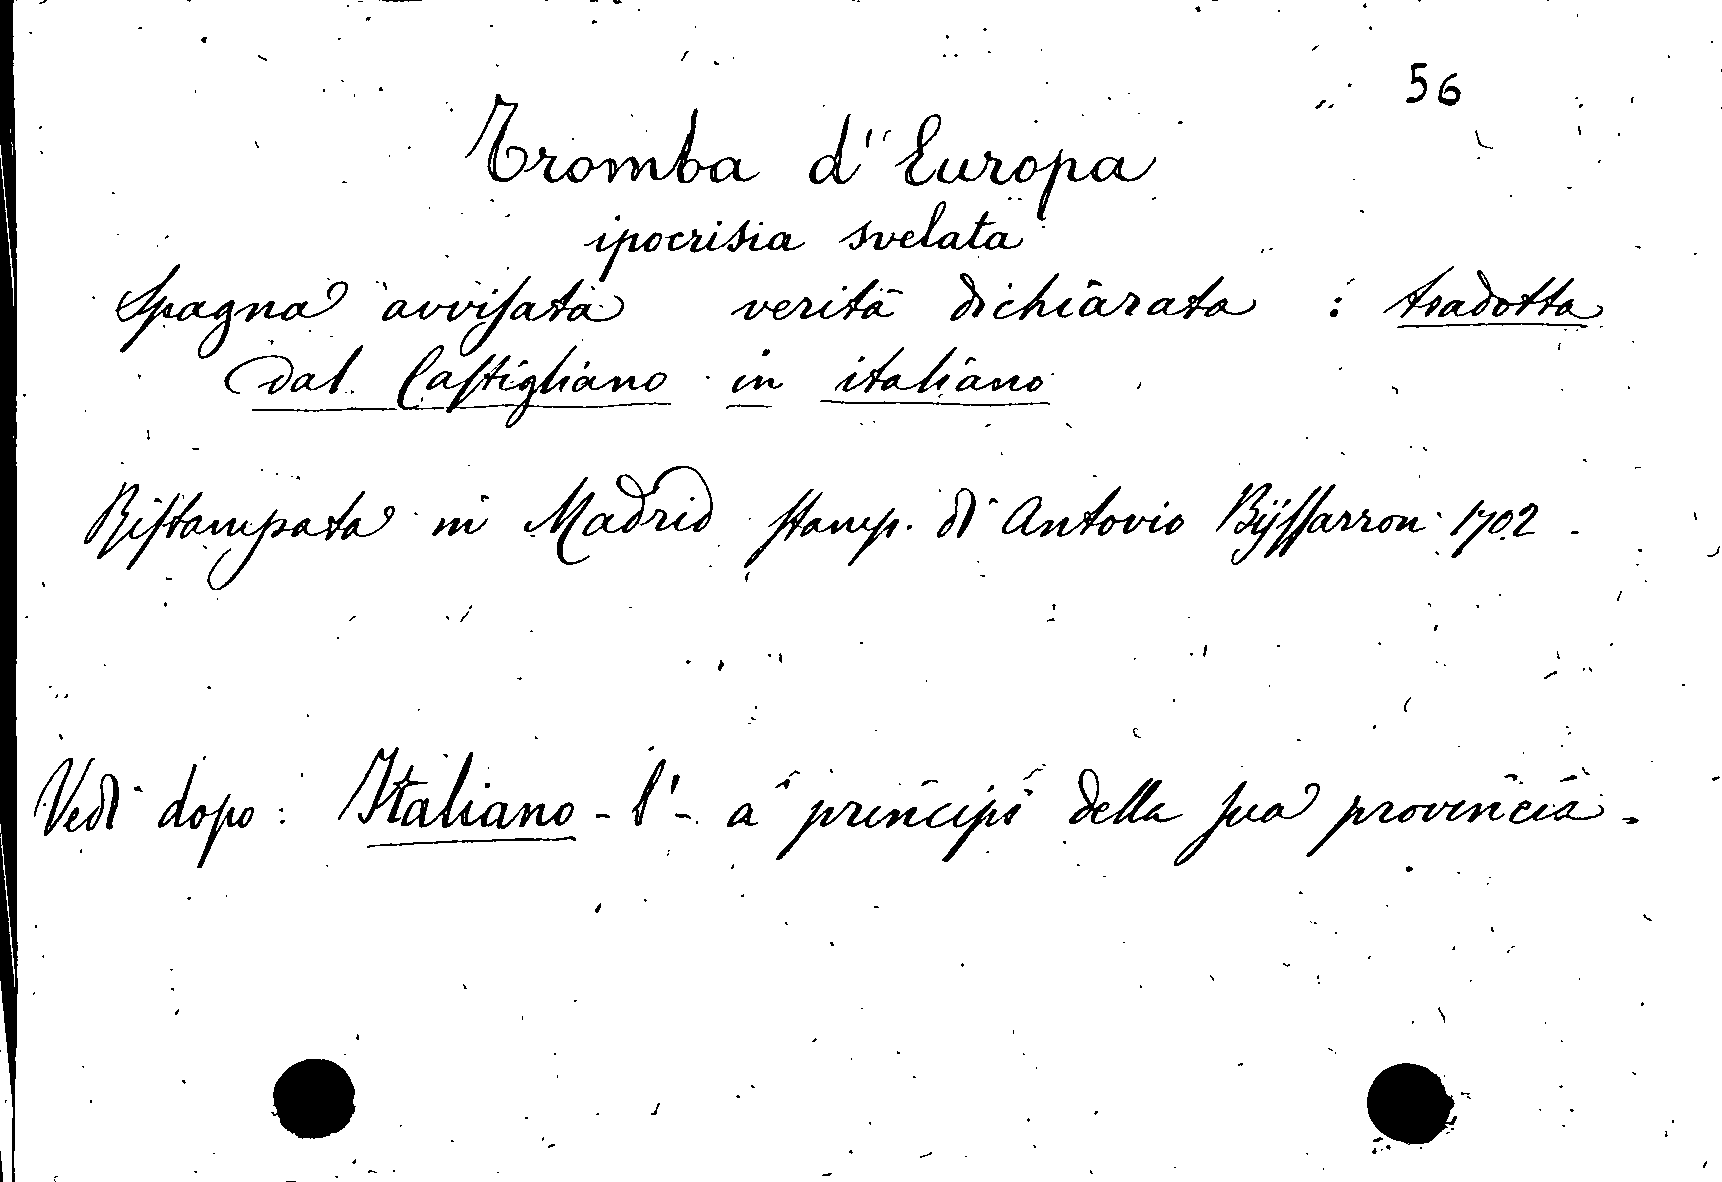 56
Tromba d'Europa
ipocrisia svelata
Spagna avviſata verità dichiarata : tradotta
dal Caſtigliano in italiano
Riſtampata in Madrid ſtamp. di Antovio Bijſſarron 1702.
Vedi dopo: Italiano - l' - a principi della ſua provincia.